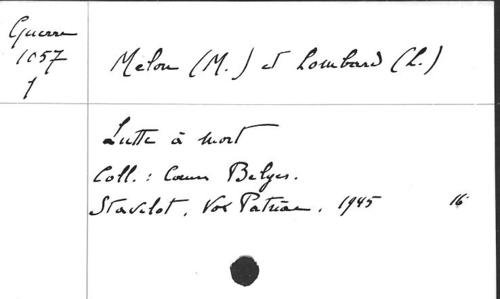 Guerre
1057
1
Melon (M.) et Lombard (L.)
Lutte à mort
Coll. : Cœurs Belges.
Stavelot, Vox Patriae, 1945 16